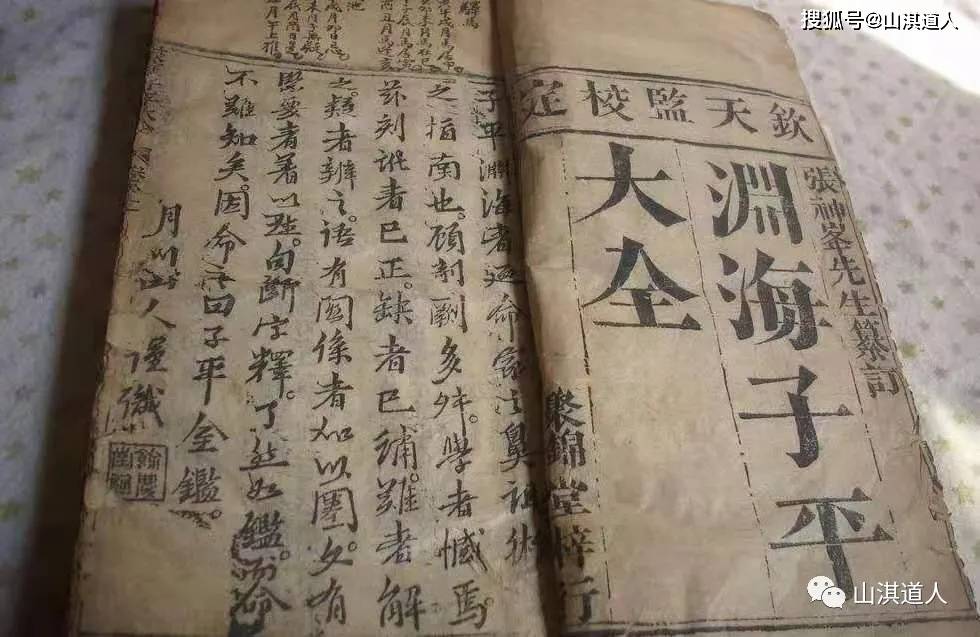 搜狐号@山淇道人
欽天監校定
張神峯先生纂訂
淵海子平
大全
聚錦堂梓行
驛馬
子平淵海者迺命家之鼻祖術
之指南也。顧剞劂多舛。學者憾焉。
茲刻訛者已正。缺者已補。難者解
之。類者辨之。語有關係者加以圈。文有
緊要者著以。句斷字釋。了然如鑑。而命
不難知矣。因命之曰子平全鑑。
月川山人謹識
山淇道人